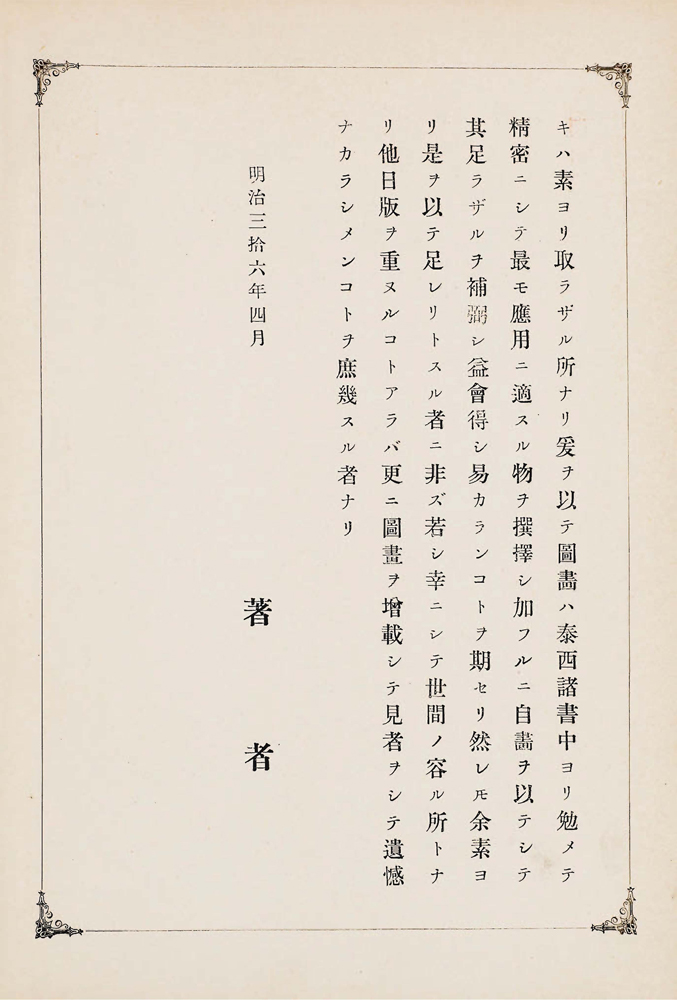 キハ素ヨリ取ラザル所ナリ爰ヲ以テ圖畵ハ泰西諸書中ヨリ勉メテ
精密ニシテ最モ應用ニ適スル物ヲ撰擇シ加フルニ自畵ヲ以テシテ
其足ラザルヲ補弼シ益會得シ易カランコトヲ期セリ然レ𪜈余素ヨ
リ是ヲ以テ足レリトスル者ニ非ズ若シ幸ニシテ世間ノ容ル所トナ
リ他日版ヲ重ヌルコトアラバ更ニ圖畫ヲ增載シテ見者ヲシテ遺憾
ナカラシメンコトヲ庶幾スル者ナリ
明治三拾六年四月
著者